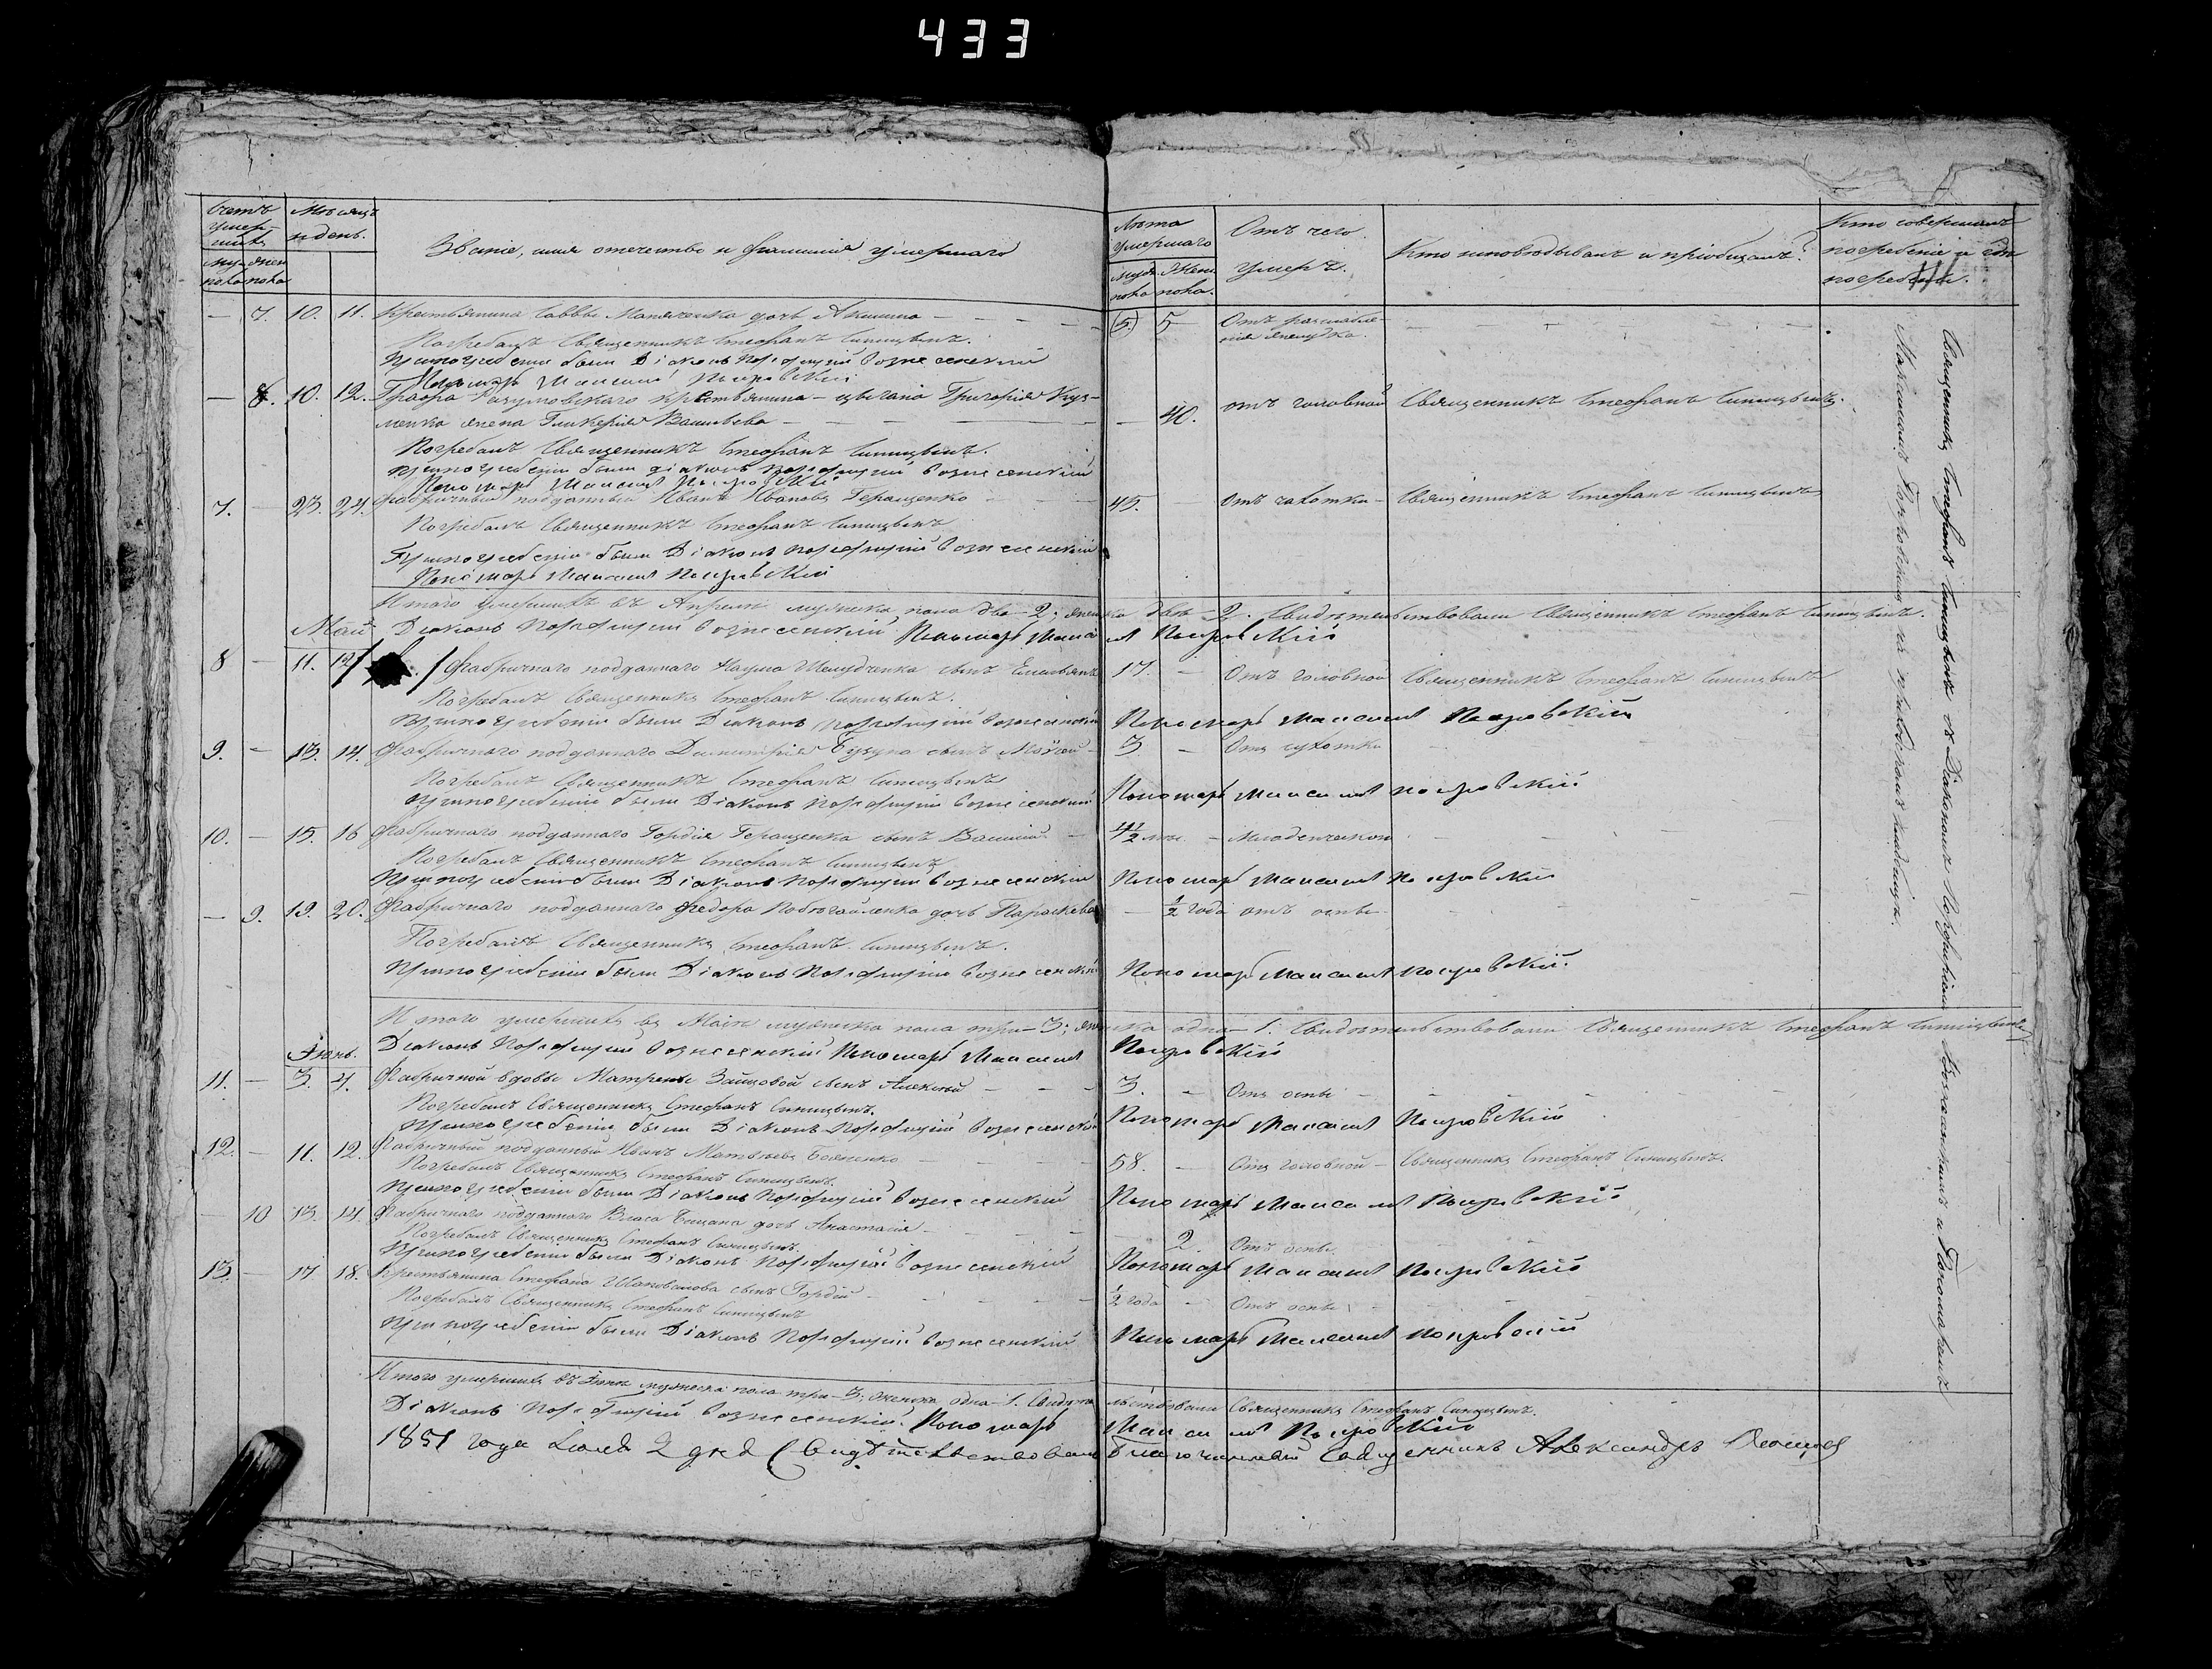 433
Счетъ умер-шихъ
Мѣсяцъ и день.
Званіе, имя отечество и фамилія умершаго
Лѣта умершаго
Отъ чего умеръ.
Кто исповѣдывалъ и пріобщалъ?
Кто совершалъ погребеніе и гдѣ погребены.
муже-ска пола
женска пола
муже-ска пола
женска пола.
— 7. 10. 11. Крестьянина Саввы дочь Акилина — 5 Отъ разслабле-
нія желудка.
Погребалъ Священникъ Стефанъ Синицынъ.
При погребеніи были Діаконъ Порфирій Вознесенскій
Пономарь Покровскій
— 8. 10. 12. Графа Разумовскаго крестьянина — цыгана Григорія Куз-
менка жена Гликерія Васильева — 40. отъ головной Священникъ Стефанъ Синицынъ.
Погребалъ Священникъ Стефанъ Синицынъ.
При погребеніи были діаконъ Порфирій Вознесенскій
Пономарь Покровскій
7. — 23. 24. Фабричный подданный Иванъ Ивановъ Геращенко 45. Отъ чахотки — Священникъ Стефанъ Синицынъ
Погребалъ Священникъ Стефанъ Синицынъ
При погребеніи были Діаконъ Порфирій Вознесенскій
Пономарь Покровскій
Итого умершихъ въ Апрелѣ мужеска пола два — 2; женска двѣ — 2. Свидѣтельствовали Священникъ Стефанъ Синицынъ.
Діаконъ Порфирій Вознесенскій Пономарь Покровскій
Май
8 — 11. 12 Фабричнаго подданнаго Наума сынъ Емельянъ 17. — Отъ головной Священникъ Стефанъ Синицынъ
Погребалъ Священникъ Стефанъ Синицынъ.
При погребеніи были Діаконъ Порфирій Вознесенскій Пономарь Покровскій
9. — 13. 14. Фабричнаго подданнаго Димитрія сынъ Моѵсей — 3 — Отъ сухотки
Погребалъ Священникъ Стефанъ Синицынъ
При погребеніи были Діаконъ Порфирій Вознесенскій Пономарь Покровскій
10. — 15. 16 Фабричнаго подданнаго Гордія Геращенка сынъ Василій — Младенческой
Погребалъ Священникъ Стефанъ Синицынъ
При погребеніи были Діаконъ Порфирій Вознесенскій Пономарь Покровскій
— 9. 19. 20. Фабричнаго подданнаго Федора дочь Параскева — ½ года отъ оспы
Погребалъ Священникъ Стефанъ Синицынъ.
При погребеніи были Діаконъ Порфирій Вознесенскій Пономарь Покровскій
Итого умершихъ въ Маіѣ мужеска пола три — 3; женска одна — 1. Свидѣтельствовали Священникъ Стефанъ Синицынъ
Діаконъ Порфирій Вознесенскій Пономарь Покровскій
Іюнь.
11. — 3. 4. Фабричной вдовы Матрены Зайцовой сынъ Алексѣй — 3. — Отъ оспы
Погребалъ Священникъ Стефанъ Синицынъ.
При погребеніи были Діаконъ Порфирій Вознесенскій Пономарь Покровскій
12. — 11. 12. Фабричный подданный Иванъ Матвѣевъ 58. — Отъ головной — Священникъ Стефанъ Синицынъ.
Погребалъ Священникъ Стефанъ Синицынъ.
При погребеніи были Діаконъ Порфирій Вознесенскій Пономарь Покровскій
— 10 13. 14. Фабричнаго подданнаго Власа дочь Анастасія — 2. Отъ оспы
Погребалъ Священникъ Стефанъ Синицынъ.
При погребеніи были Діаконъ Порфирій Вознесенскій Пономарь Покровскій
13. — 17. 18. Крестьянина Стефана Шаповалова сынъ Гордій — ½ года — Отъ оспы
Погребалъ Священникъ Стефанъ Синицынъ
При погребеніи были Діаконъ Порфирій Вознесенскій Пономарь Покровскій
Итого умершихъ въ Іюнѣ мужеска пола три — 3; женска одна — 1. Свидѣтельствовали Священникъ Стефанъ Синицынъ.
Діаконъ Порфирій Вознесенскій. Пономарь Покровскій
1851 года Іюля 2 дня Свидѣтельствовалъ Благочинный Священникъ Александръ
Священникъ Стефанъ Синицынъ съ Діакономъ Порфиріемъ Вознесенскимъ и Пономаремъ
на приходскомъ кладбищѣ.